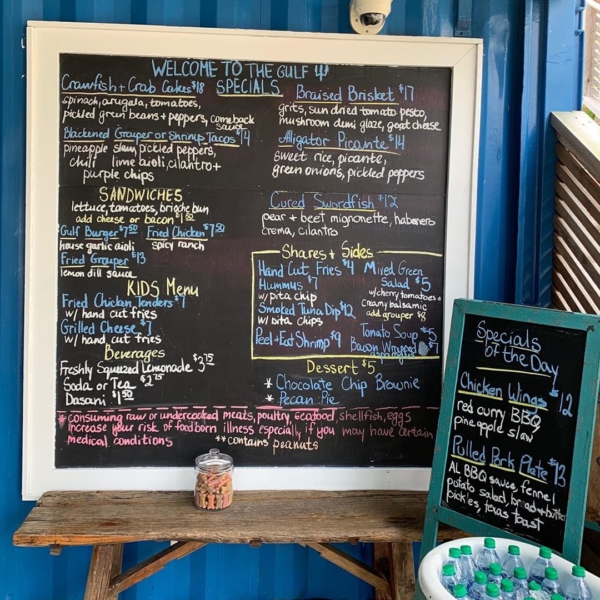 WELCOME TO THE GULF
SPECIALS
Crawfish + Crab Cakes $18
spinach, arugala, tomatoes,
pickled green beans + peppers, comeback
sauce
Blackened Grouper or Shrimp Tacos $14
pineapple slaw, pickled peppers,
chili lime aioli, cilantro +
purple chips
Braised Brisket $17
grits, sun dried tomato pesto,
mushroom demi glaze, goat cheese
Alligator Picante $14
sweet rice, picante,
green onions, pickled peppers
Cured Swordfish $12
pear + beet mignonette, habanero
crema, cilantro
SANDWICHES
lettuce, tomatoes, brioche bun
add cheese or bacon $1.50
Gulf Burger $7.50
house garlic aioli
Fried Chicken $7.50
spicy ranch
Fried Grouper $13
lemon dill sauce
KIDS Menu
Fried Chicken Tenders $7
w/ hand cut fries
Grilled Cheese $7
w/ hand cut fries
Beverages
Freshly Squeezed Lemonade $3.75
Soda or Tea $2.75
Dasani $1.50
Shares + Sides
Hand Cut Fries $4
Hummus $7
w/ pita chip
Smoked Tuna Dip $12
w/ pita chips
Peel + Eat Shrimp $9
Mixed Green
Salad $5
w/ cherry tomatoes +
creamy balsamic
add grouper $8
Tomato Soup $5
Bacon Wrapped
Dessert $5
* Chocolate Chip Brownie
* Pecan Pie
* consuming raw or undercooked meats, poultry, seafood, shellfish, eggs
increase your risk of foodborn illness especially if you may have certain
medical conditions
** contains peanuts
Specials
of the Day
Chicken Wings $12
red curry BBQ
pineapple slaw
Pulled Pork Plate $13
AL BBQ sauce, fennel
potato salad, bread + butter
pickles, texas toast